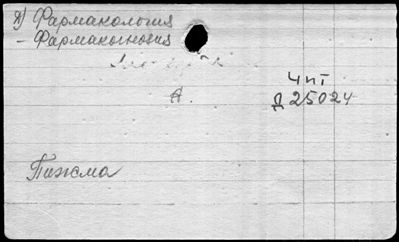 я) Фармакология
- Фармакогнозия
Чпт
А.
Д 25024
Пижма